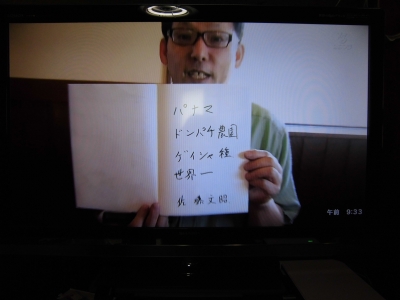 パナマ
ドンパチ農園
ゲイシャ種
世界一
佐藤文昭
午前 0:33